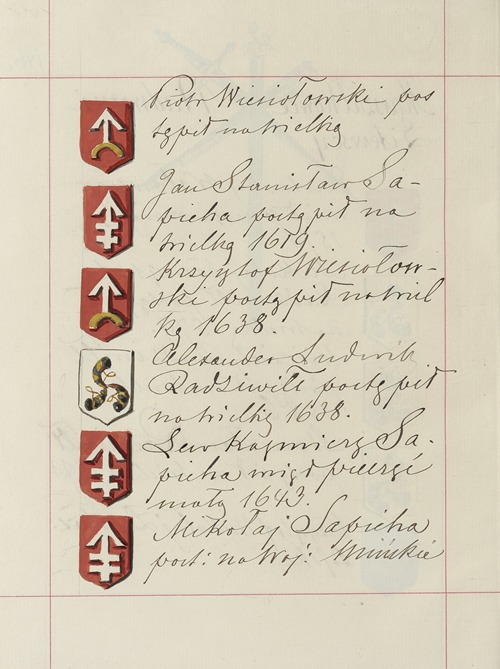 Piotr Wiesiołowski pos
tąpił na wielką
Jan Stanisław Sa-
pieha postąpił na
wielką 1619.
Krzysztof Wiesiołow-
ski postąpił na wiel
ką 1638.
Alexander Ludwik
Radziwiłł postąpił
na wielką 1638.
Lew Kazmierz Sa-
pieha wziął pieczęć
małą 1643.
Mikołaj Sapieha
post: na Woj: Mińskie